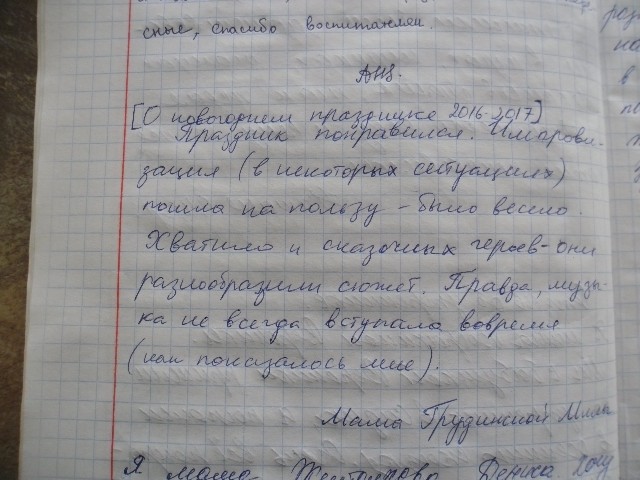 сные, спасибо воспитателям.
АНЗ.
[О новогоднем празднике 2016-2017]
Праздник понравился. Импрови-
зация (в некоторых ситуациях)
пошла на пользу - было весело.
Хватило и сказочных героев - они
разнообразили сюжет. Правда, музы-
ка не всегда вступала вовремя
(как показалось мне).
Мама Грудинской Милы
Я мама